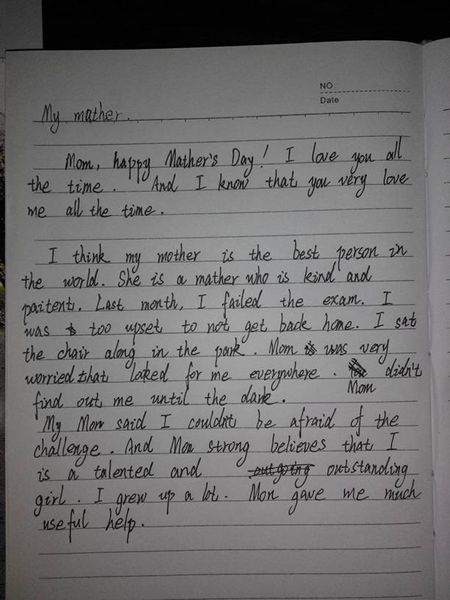 NO
Date
My mather.
Mom, happy Mather's Day! I love you all
the time. And I know that you very love
me all the time.
I think my mother is the best person in
the world. She is a mather who is kind and
paitent. Last month, I failed the exam. I
was too upset to not get back home. I sat
the chair along in the park. Mom was very
worried that looked for me everywhere. Mom didn't
find out me until the dark.
My Mom said I couldn't be afraid of the
challenge. And Mom strong believes that I
is a talented and outgoing outstanding
girl. I grew up a lot. Mom gave me much
useful help.